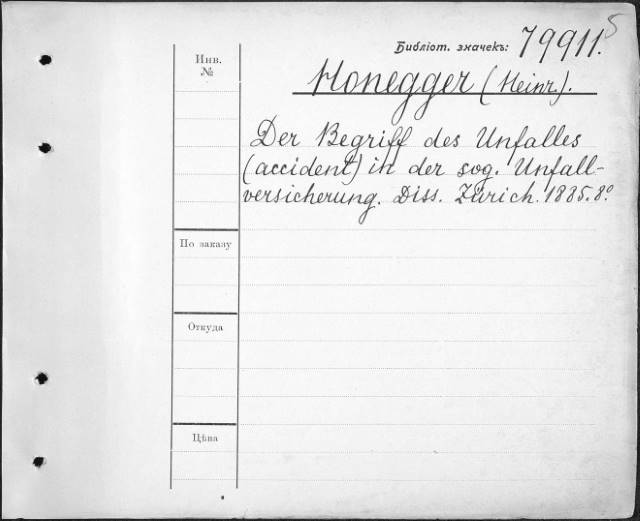 5
Библіот. значекъ: 79911.
Инв.
№
Honegger (Heinr.).
Der Begriff des Unfalles
(accident) in der sog. Unfall-
versicherung. Diss. Zürich. 1885. 8º
По заказу
Откуда
Цѣна